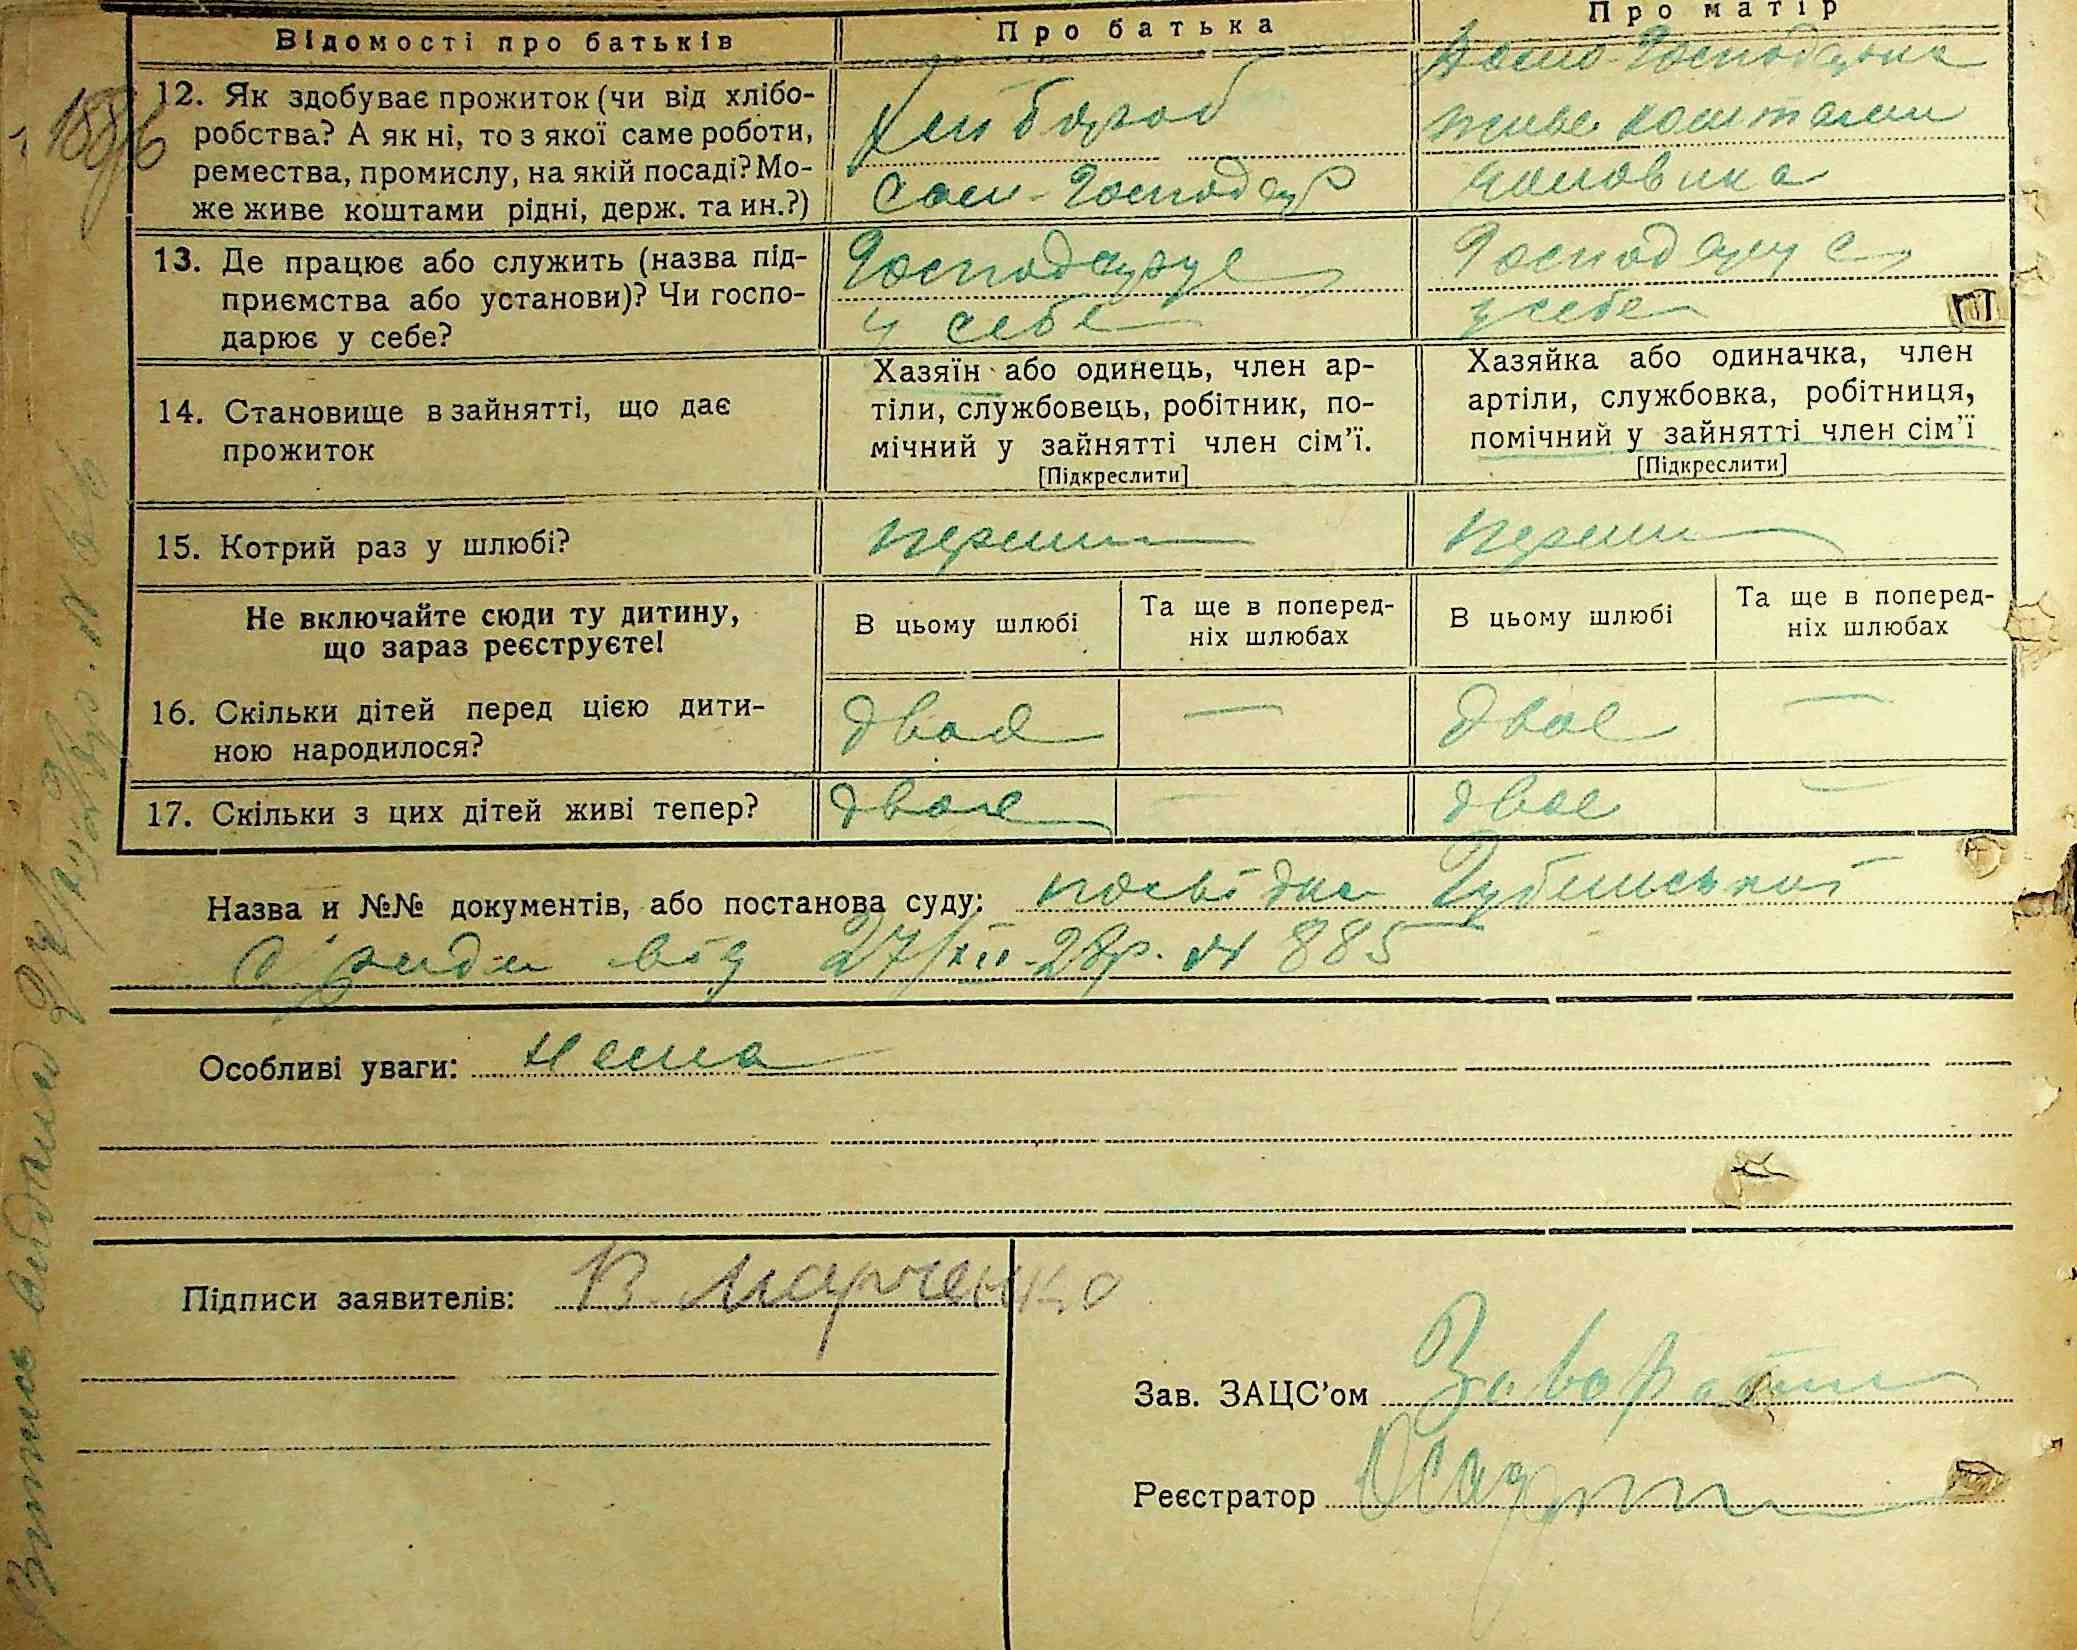 Відомості про батьків
Про батька
Про матір
12. Як здобуває прожиток (чи від хлібо-
робства? А як ні, то з якої саме роботи,
ремества, промислу, на якій посаді? Мо-
же живе коштами рідні, держ. та ин.?)
Хлібороб
Сам-Господар
Домо-Господарка
живе коштами
чоловіка
13. Де працює або служить (назва під-
приємства або установи)? Чи госпо-
дарює у себе?
Господарує
у себе
Господарує
у себе
14. Становище в зайнятті, що дає
прожиток
Хазяїн або одинець, член ар-
тіли, службовець, робітник, по-
мічний у зайнятті член сім'ї.
[Підкреслити]
Хазяйка або одиначка, член
артіли, службовка, робітниця,
помічний у зайнятті член сім'ї
[Підкреслити]
15. Котрий раз у шлюбі?
перший
перший
Не включайте сюди ту дитину,
що зараз реєструєте!
В цьому шлюбі
Та ще в поперед-
ніх шлюбах
В цьому шлюбі
Та ще в поперед-
ніх шлюбах
16. Скільки дітей перед цією дити-
ною народилося?
двоє
—
двоє
—
17. Скільки з цих дітей живі тепер?
двоє
—
двоє
—
Назва и №№ документів, або постанова суду: посвідка
с/ради від 27/XII-28р. № 885
Особливі уваги: нема
Підписи заявителів: В. Марченко
Зав. ЗАЦС'ом
Реєстратор